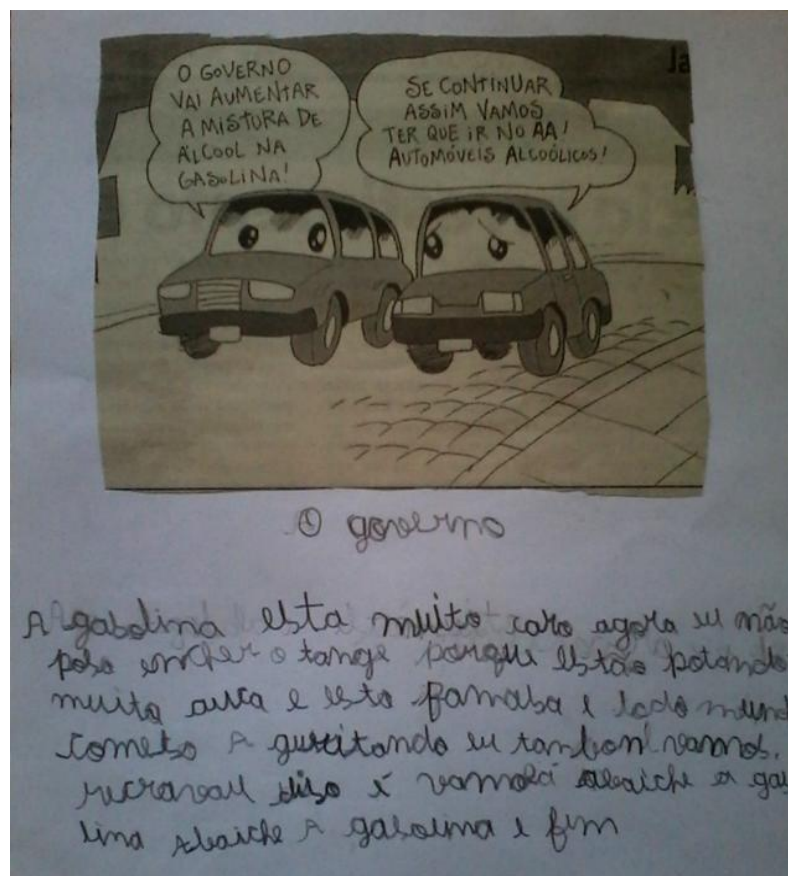 Ja
O GOVERNO
VAI AUMENTAR
A MISTURA DE
ÁLCOOL NA
GASOLINA!
SE CONTINUAR
ASSIM VAMOS
TER QUE IR NO AA!
AUTOMÓVEIS ALCOÓLICOS!
O governo
A gasolina esta muito caro agora eu não
poso encher o tange porque estão potando
muita e esta e todo mund
comeso A eu tanbon vamos.
diso e vamos abaiche a gas
lina Abaiche A gasolina e fim